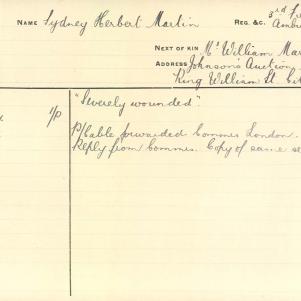 NAME Sydney Herbert Martin REG. &C. 3rd
NEXT OF KIN Mr William Mar
ADDRESS Johnson's Auction
King William St. Cit
1/P "Severely wounded".
P/Cable forwarded Commrs London.
Reply from Commrs. Copy of same se